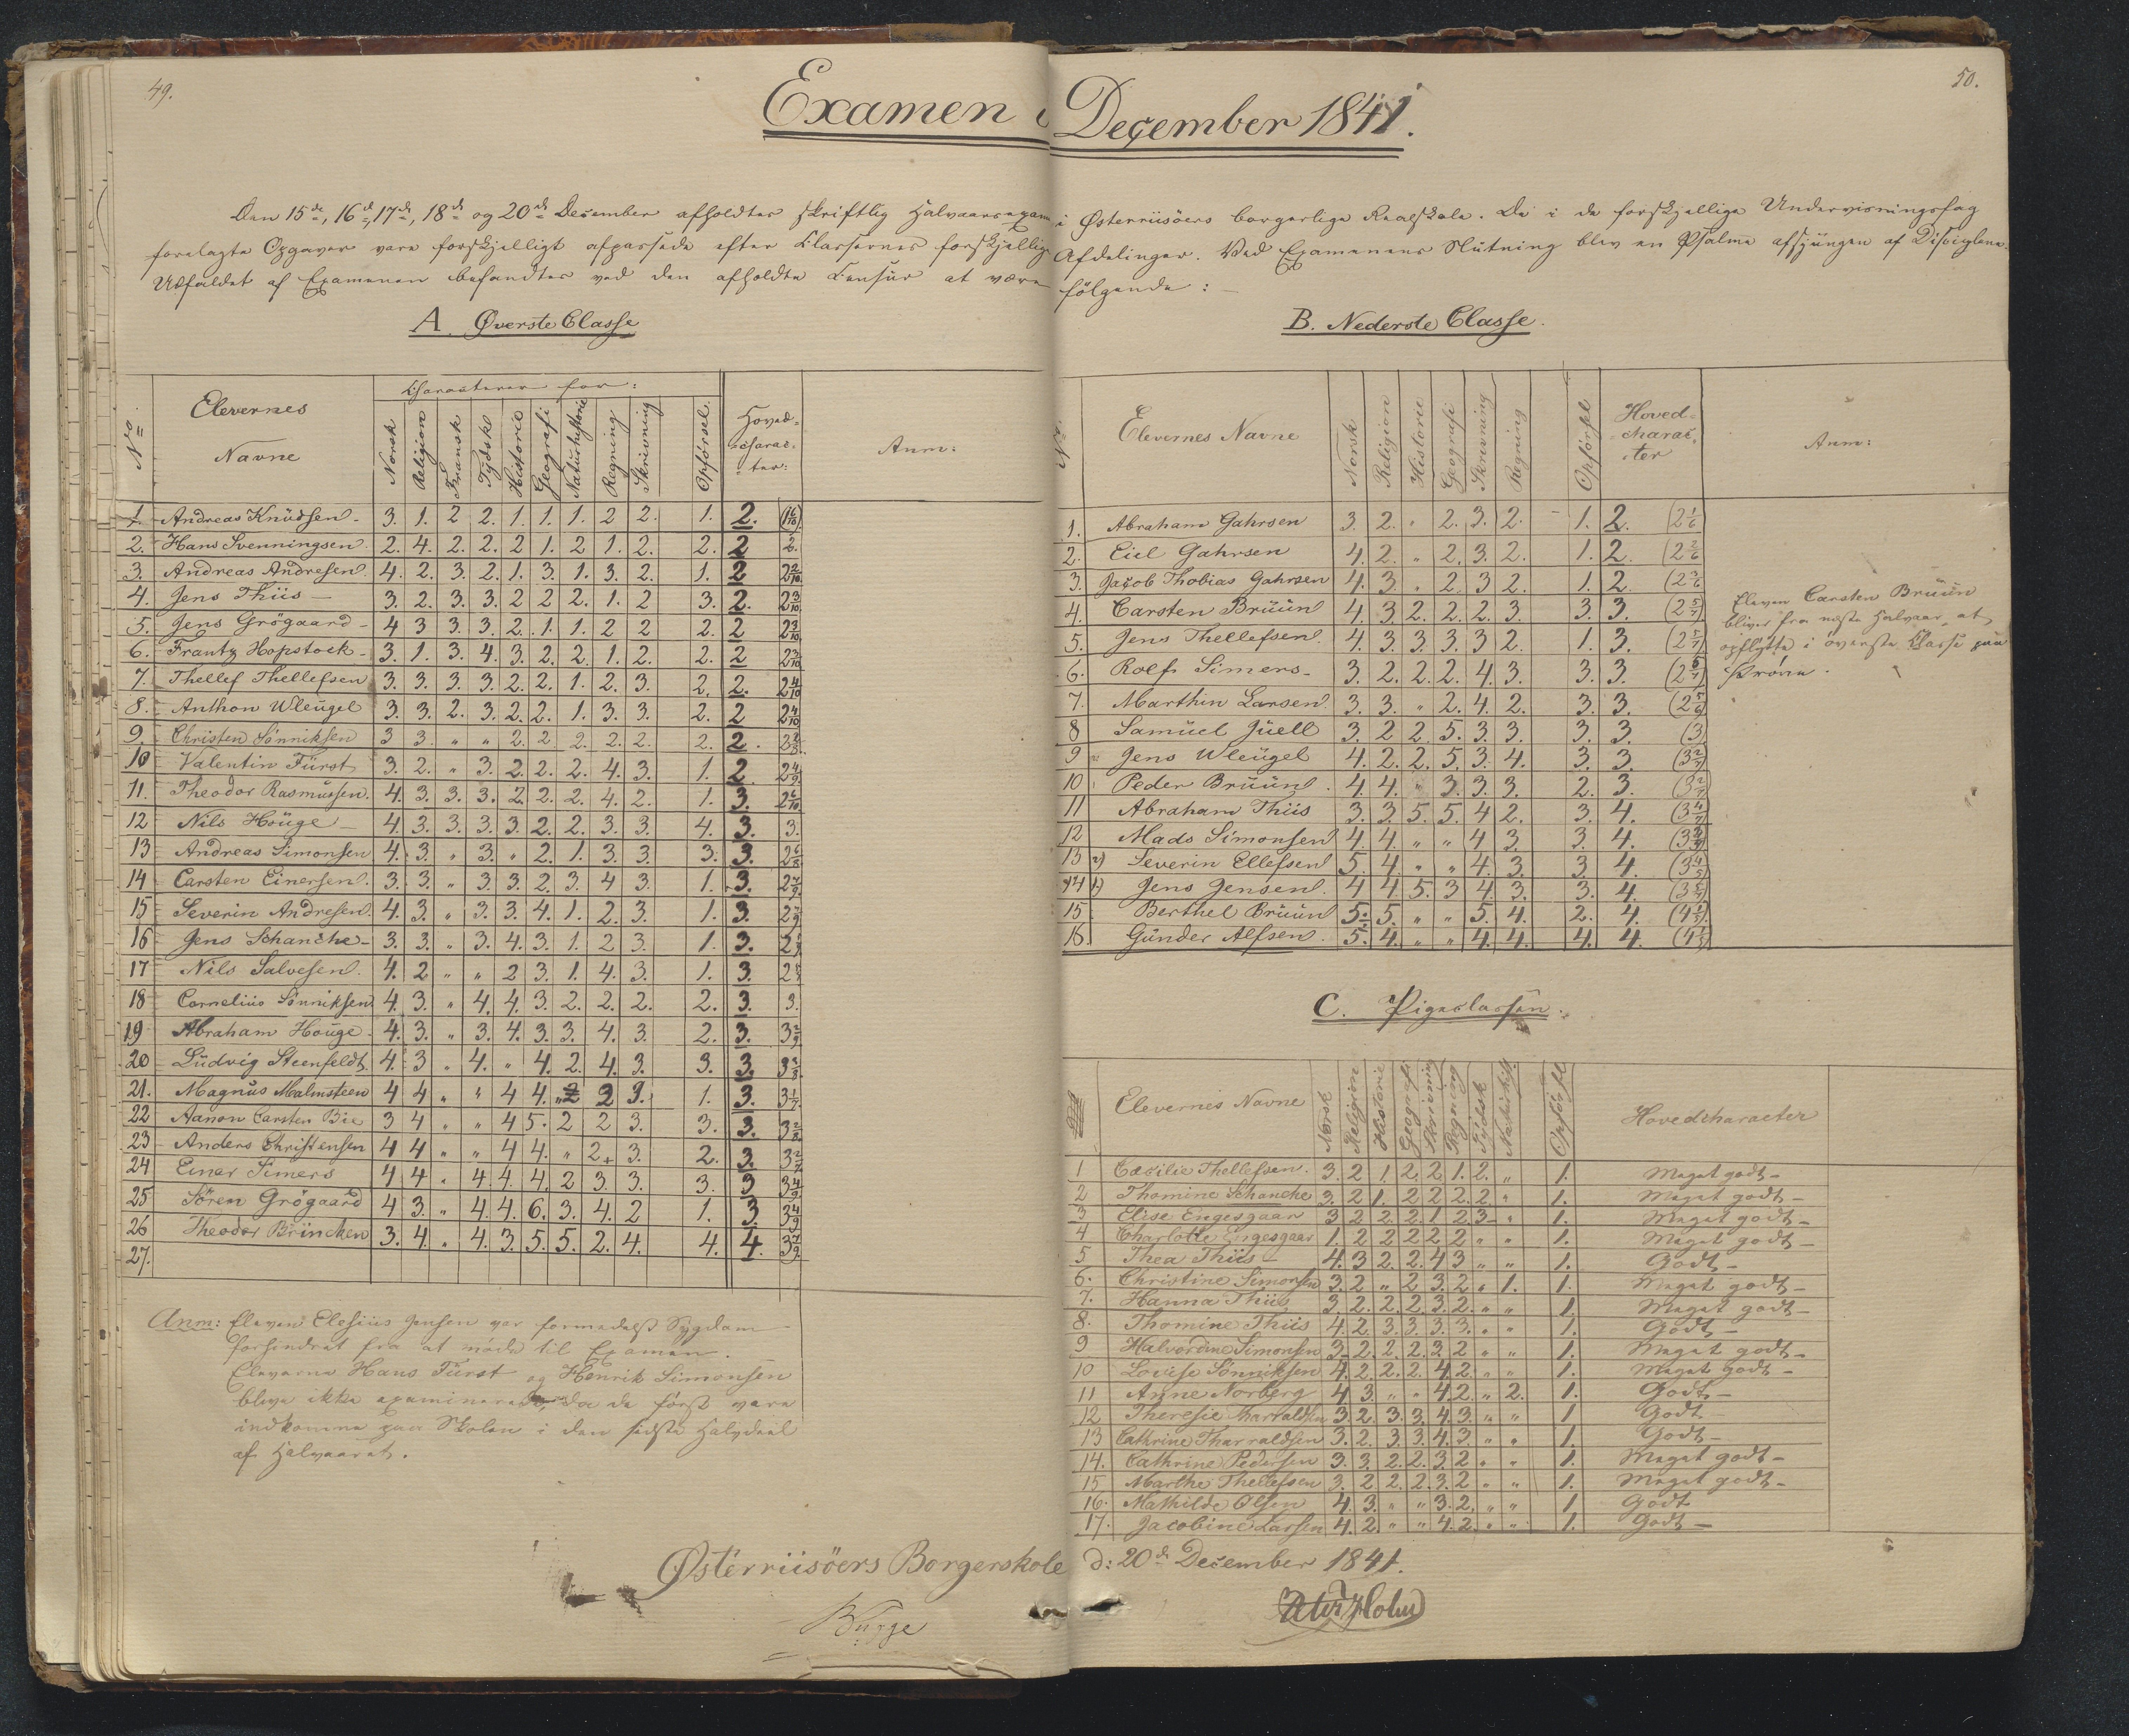 49.
50.
Examen i December 1841.
Den 15de, 16de, 17de, 18de og 20de December afholdtes skriftlig Halvaarsexamen i Østerriisöers borgerlige Realskole. De i de forskjellige Undervisningsfag
forelagte Opgaver vare forskjelligt afpassede efter Klassernes forskjellige Afdelinger. Ved Examenens Slutning blev en Psalme afsjungen af Disciplene.
Udfaldet af Examenen befandtes ved den afholdte Censur at være følgende: —
A. Øverste Classe
No. Elevernes Navne Characterer for: Norsk Religion Fransk Tydsk Historie Geografi Naturhistorie Regning Skrivning Opførsel. Hoved-charac-ter: Anm:
1. Andreas Knudsen 3. 1. 2 2. 1. 1. 1. 2 2. 1. 2. (1 6/10)
2. Hans Svenningsen. 2. 4. 2. 2. 2 1. 2 1. 2. 2. 2 2.
3. Andreas Andresen. 4. 2. 3. 2. 1. 3. 1. 3. 2. 1. 2 2 2/10
4. Jens Thiis — 3. 2. 3. 3. 2 2 2. 1. 2 3. 2. 2 3/10
5. Jens Grögaard - 4 3 3. 3. 2. 1. 1. 2 2 2. 2 2 3/10
6. Frantz Hopstock - 3. 1. 3. 4. 3. 2. 2. 1. 2. 2. 2 2 3/10
7. Thellef Thellefsen 3. 3. 3. 3. 2. 2. 1. 2. 3. 2. 2. 2 4/10
8. Anthon Wleugel 3. 3. 2. 3. 2. 2. 1. 3. 3. 2. 2 2 4/10
9. Christen Sönniksen 3 3. " " 2. 2. 2. 2. 2. 2. 2.
10 Valentin Fürst 3. 2. " 3. 2. 2. 2. 4. 3. 1. 2. 2 4/9
11. Theodor Rasmussen. 4. 3. 3. 3. 2. 2. 2. 4. 2. 1. 3. 2 6/10
12 Nils Houge — 4. 3. 3. 3. 3. 2. 2. 3. 3. 4. 3. 3.
13 Andreas Simonsen 4. 3. " 3. " 2. 1. 3. 3. 3. 3. 2 6/8
14 Carsten Einersen. 3. 3. " 3. 3. 2. 3. 4 3. 1. 3. 2 7/9
15 Severin Andresen. 4. 3. " 3. 3. 4. 1. 2. 3. 1. 3. 2 7/9
16 Jens Schanche - 3. 3. " 3. 4. 3. 1. 2 3. 1. 3.
17 Nils Salvesen. 4. 2 " " 2 3. 1. 4. 3. 1. 3.
18 Cornelius Sönniksen 4. 3. " 4. 4. 3. 2. 2. 2. 2. 3. 3.
19 Abraham Houge. 4. 3. " 3. 4. 3. 3. 4. 3. 2. 3. 3 2/9
20 Ludvig Steenfeldt. 4. 3 " 4. " 4. 2. 4. 3. 3. 3. 3 3/8
21. Magnus Malmsteen 4 4 " " 4 4. " 2 3. 1. 3. 3 1/7
22 Aanon Carsten Bie 3 4 " " 4 5. 2 2 3. 3. 3. 3 2/8
23 Anders Christensen 4 4 " " 4 4. " 2. 3. 2. 3. 3 2/7
24 Einar Simers 4 4. " 4. 4. 4. 2 3. 3. 3. 3 3 4/9
25 Sören Grögaard 4 3. " 4. 4. 6. 3. 4. 2 1. 3 3 4/9
26 Theodor Brincken 3. 4. " 4. 3. 5. 5. 2. 4. 4. 4. 3 7/9
27.
Anm: Eleven Elesius Jensen var formedelst Sygdom
forhindret fra at møde til Examen.
Eleverne Hans Fürst og Henrik Simonsen
bleve ikke examinerede, da de først vare
indkomne paa Skolen i den sidste Halvdeel
af Halvaaret.
B. Nederste Classe.
No. Elevernes Navne Norsk Religion Historie Geografi Skrivning Regning Opførsel Hoved-charac-ter Anm:
1. Abraham Gahrsen 3. 2. " 2. 3. 2. 1. 2. (2 1/6)
2. Eiel Gahrsen 4. 2. " 2. 3. 2. 1. 2. (2 2/6)
3. Jacob Thobias Gahrsen 4. 3. " 2. 3 2. 1. 2. (2 3/6)
4. Carsten Brüün 4. 3 2. 2. 2. 3. 3. 3. (2 5/7)
5. Jens Thellefsen. 4. 3. 3. 3. 3 2. 1. 3. (2 5/7)
6. Rolf Simers - 3. 2. 2. 2. 4. 3. 3. 3. (2 5/7)
7. Marthin Larsen 3. 3. " 2. 4. 2. 3. 3. (2 5/6)
8 Samuel Juell 3. 2 2. 5. 3. 3. 3. 3. (3)
9 Jens Wleugel 4. 2. 2. 5. 3. 4. 3. 3. (3 2/7)
10 Peder Brüün. 4. 4. " 3. 3. 3. 2. 3.
11 Abraham Thiis 3. 3. 5. 5. 4 2. 3. 4. (3 4/7)
12 Mads Simonsen 4. 4. " " 4 3. 3. 4.
13 Severin Ellefsen 5. 4. " " 4. 3. 3 4. (3 4/5)
14 Jens Jensen. 4 4. 5. 3 4. 3. 3. 4. (3 5/7)
15 Berthel Brüün 5. 5. " " 5. 4. 2. 4. (4 1/5)
16. Gunder Alfsen. 5. 4. " " 4. 4. 4. 4. (4 1/5)
Eleven Carsten Brüün
bliver fra næste Halvaar at
opflytte i øverste Classe paa
Prøve.
C. Pigeclassen.
Elevernes Navne Norsk Religion Historie Geografi Skrivning Regning Tydsk Naturhist. Opførsel Hovedcharacter
1 Cæcilie Thellefsen. 3. 2 1. 2. 2 1. 2. " 1. Meget godt -
2 Thomine Schanche 3. 2 1. 2 2 2. 2. " 1. Meget godt -
3 Elise Engesgaar 3 2 2. 2. 1 2. 3 " 1. Meget godt -
4 Charlotte Engesgaar 1. 2 2 2 2 2 " " 1. Meget godt -
5 Thea Thiis - 4. 3 2. 2. 4 3 " " 1. Godt -
6. Christine Simonsen 3. 2 " 2 3. 2 " 1. 1. Meget godt -
7. Hanna Thiis 3. 2. 2. 2 3. 2. " " 1. Meget godt -
8. Thomine Thiis 4. 2. 3. 3. 3. 3. " " 1. Godt -
9 Halvordine Simonsen 3. 2. 2. 2. 3. 2 " " 1. Meget godt -
10 Lovise Sönniksen 4. 2. 2. 2. 4 2. " " 1. Meget godt -
11 Anne Norberg 4 3. " " 4. 2. " 2. 1. Godt -
12 Theresie Tharraldsen 3. 2. 3. 3. 4. 3. " " 1 Godt -
13 Cathrine Tharraldsen 3. 2. 3. 3. 4. 3. " " 1. Godt -
14. Cathrine Pedersen 3. 3. 2. 2. 3. 2 " " 1. Meget godt -
15 Marthe Thellefsen 3. 2 2. 2. 3. 2 " " 1. Meget godt -
16. Mathilde Olsen 4. 3. " " 3. 2. " " 1 Godt
17. Jacobine Larsen 4. 2. " " 4. 2. " " 1. Godt -
Østerriisöers Borgerskole d: 20de December 1841.
Bugge
Holm